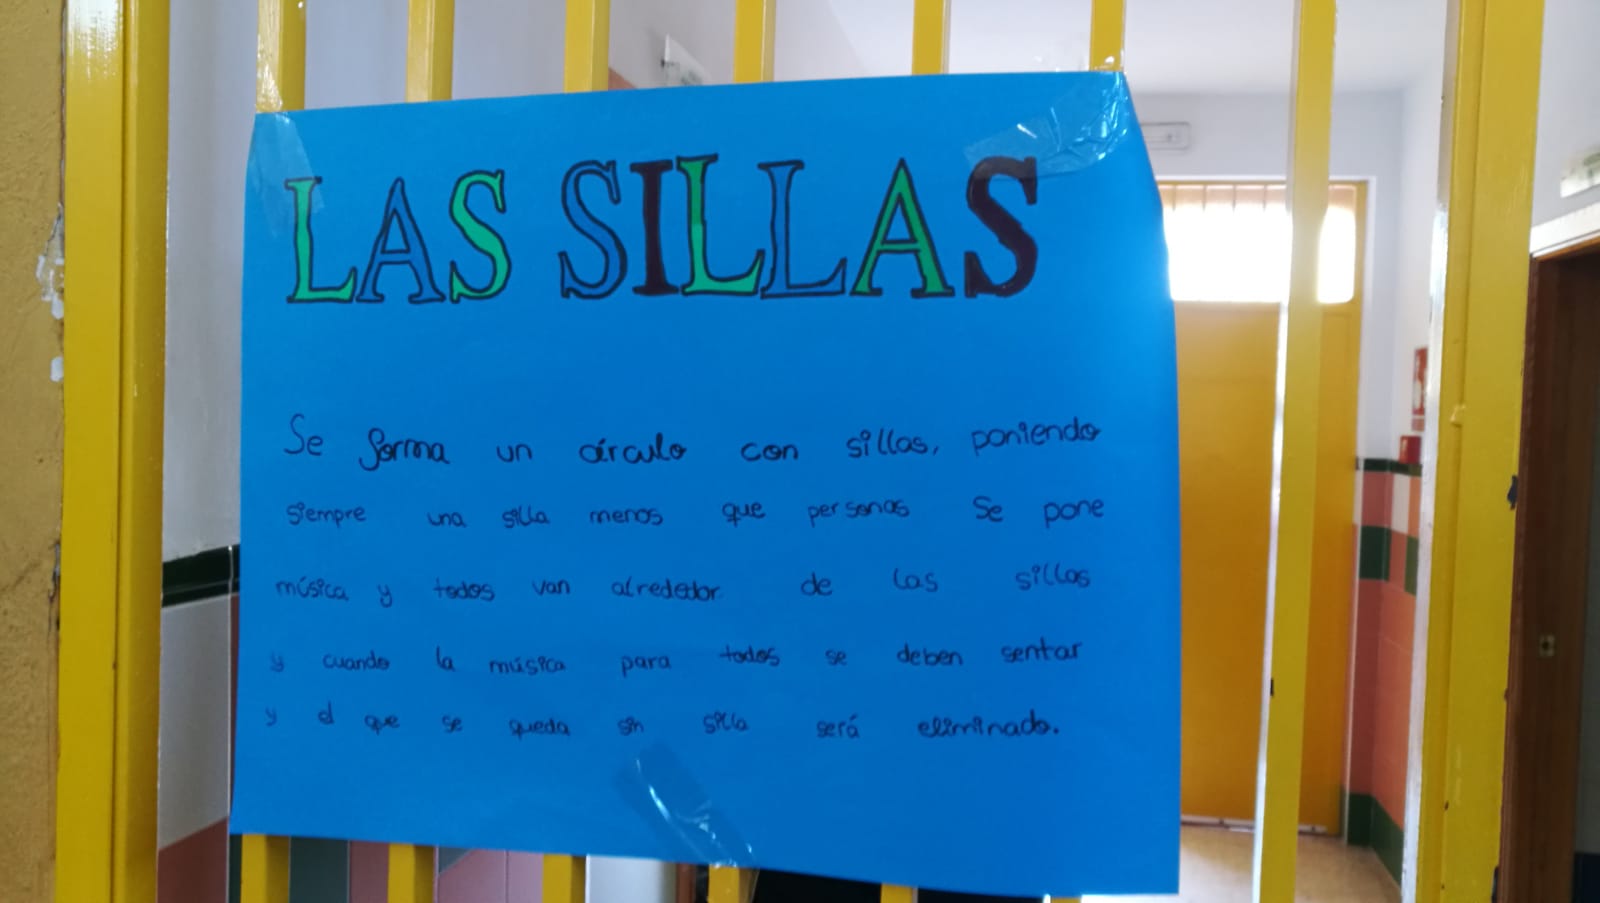 LAS SILLAS
Se forma un círculo con sillas, poniendo
siempre una silla menos que personas Se pone
música y todos van alrededor de las sillas
y cuando la música para todos se deben sentar
y el que se queda sin silla será eliminado.